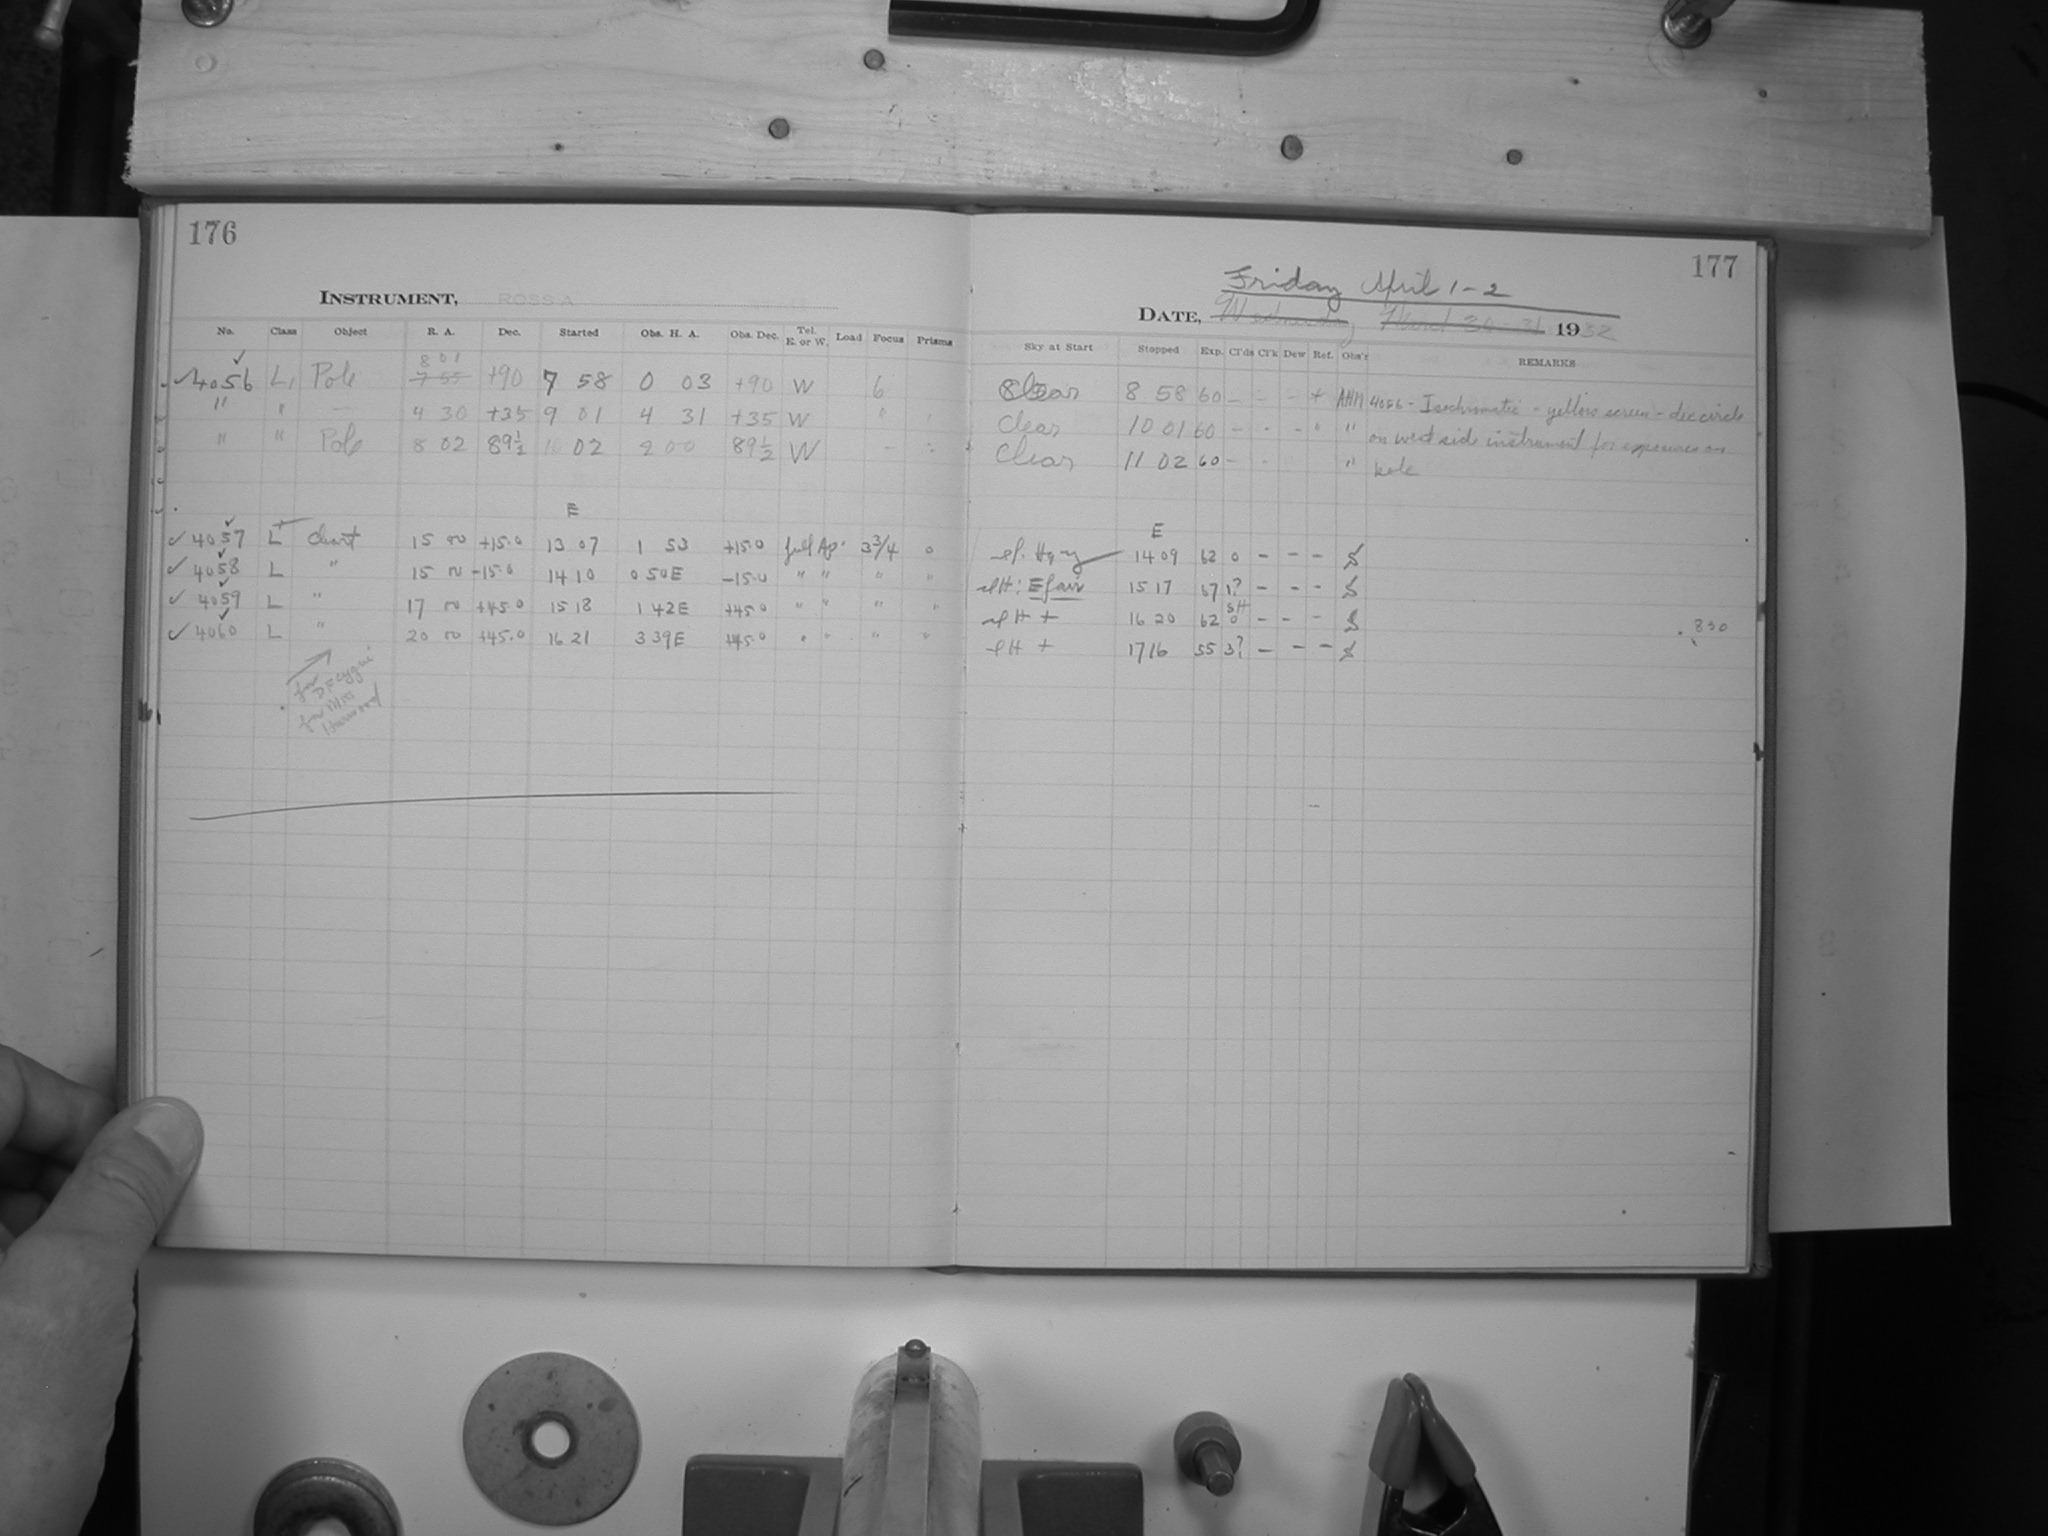 176
INSTRUMENT, ROSS A
No. Class Object R. A. Dec. Started Obs. H. A. Obs. Dec. Tel. E. or W. Load Focus Prisms
8 01
✓4056 L, Pole 7 55 +90 7 58 0 03 +90 W 6
" " — 4 30 +35 9 01 4 31 +35 W "
" " Pole 8 02 89½ 10 02 2 00 89½ W -
E
✓ 4057 L Chart 15 00 +15.0 13 07 1 53 +15.0 full Ap. 3¾ 0
✓ 4058 L " 15 00 -15.0 14 10 0 50E -15.0 " " " "
✓ 4059 L " 17 00 +45.0 15 18 1 42E +45.0 " " " "
✓ 4060 L " 20 00 +45.0 16 21 3 39E +45.0 " " " "
for
DF Cygni
for Miss
Harwood
177
Friday April 1-2
DATE, Wednesday March 30-31 1932
Sky at Start Stopped Exp. Cl'ds Cl'k Dew Ref. Obs'r REMARKS
Clear 8 58 60 - - - + AHM 4056 - Isochromatic - yellow screen - dec circle
Clear 10 01 60 - - - " " on west side instrument for exposures on
Clear 11 02 60 - - " pole
E
14 09 62 0 - - - S
Efair 15 17 67 1? - - - S
SH
H + 16 20 62 0 - - - S
H + 17 16 55 3? - - - S
830